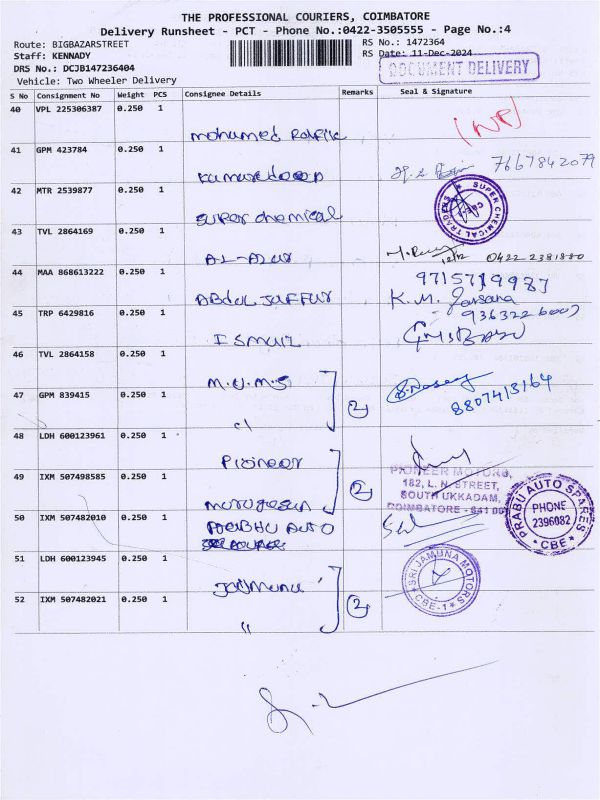 THE PROFESSIONAL COURIERS, COIMBATORE
Delivery Runsheet - PCT - Phone No.:0422-3505555 - Page No.:4
Route: BIGBAZARSTREET
RS No.: 1472364
Staff: KENNADY
RS Date: 11-Dec-2024
DRS No.: DCJB147236404
DOCUMENT DELIVERY
Vehicle: Two Wheeler Delivery
S No Consignment No Weight PCS Consignee Details Remarks Seal & Signature
40 VPL 225306387 0.250 1
mohamed Rafik
(NP)
41 GPM 423784 0.250 1
7667842079
42 MTR 2539877 0.250 1
super chemical
SUPER CHEMICAL TRADERS
CBE-1
43 TVL 2864169 0.250 1
AL-Azur
12/12 0422 2381880
44 MAA 868613222 0.250 1
9715719987
Abdul Jaffur
K. M.
9363226007
45 TRP 6429816 0.250 1
Ismail
46 TVL 2864158 0.250 1
M.U.M.S
47 GPM 839415 0.250 1
2
8807413164
48 LDH 600123961 0.250 1
Pioneer
PIONEER MOTORS,
182, L. N. STREET,
SOUTH UKKADAM,
COIMBATORE - 641 001
49 IXM 507498585 0.250 1
2
murugesan
50 IXM 507482010 0.250 1
PRABHU AUTO
PRABU AUTO SPARES
PHONE
2396082
CBE
51 LDH 600123945 0.250 1
Jadmunu
SRI JAMUNA MOTORS
CBE-1
52 IXM 507482021 0.250 1
"
2